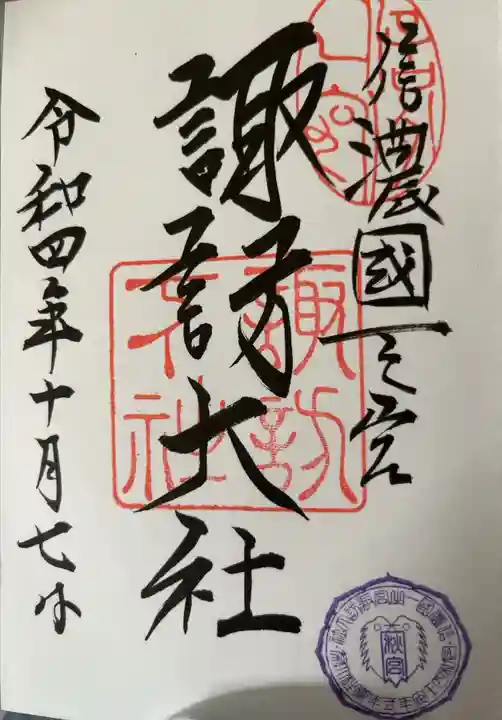 信濃國一之宮
諏訪大社
令和四年十月七日
諏訪
大社
秋宮